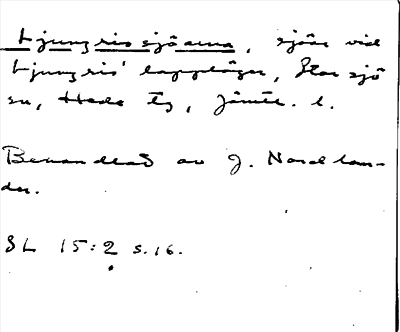 Ljungrissjöarna, sjöar vid
Ljungris' lappläger, Storsjö
sn, Hede tg, Jämtl. l.
Behandlad av J. Nordlan-
der.
SL 15:2 s.16.